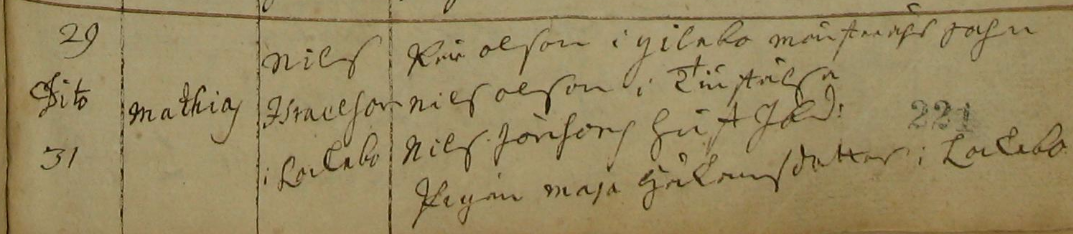 29
Dito
31
Mathias
Nils
Israelson
i Lockebo
Per olson i gilabo sohn
Nils olson i
Nils Jönsons hust
Pigan maja Håkansdatter i Lockebo
221